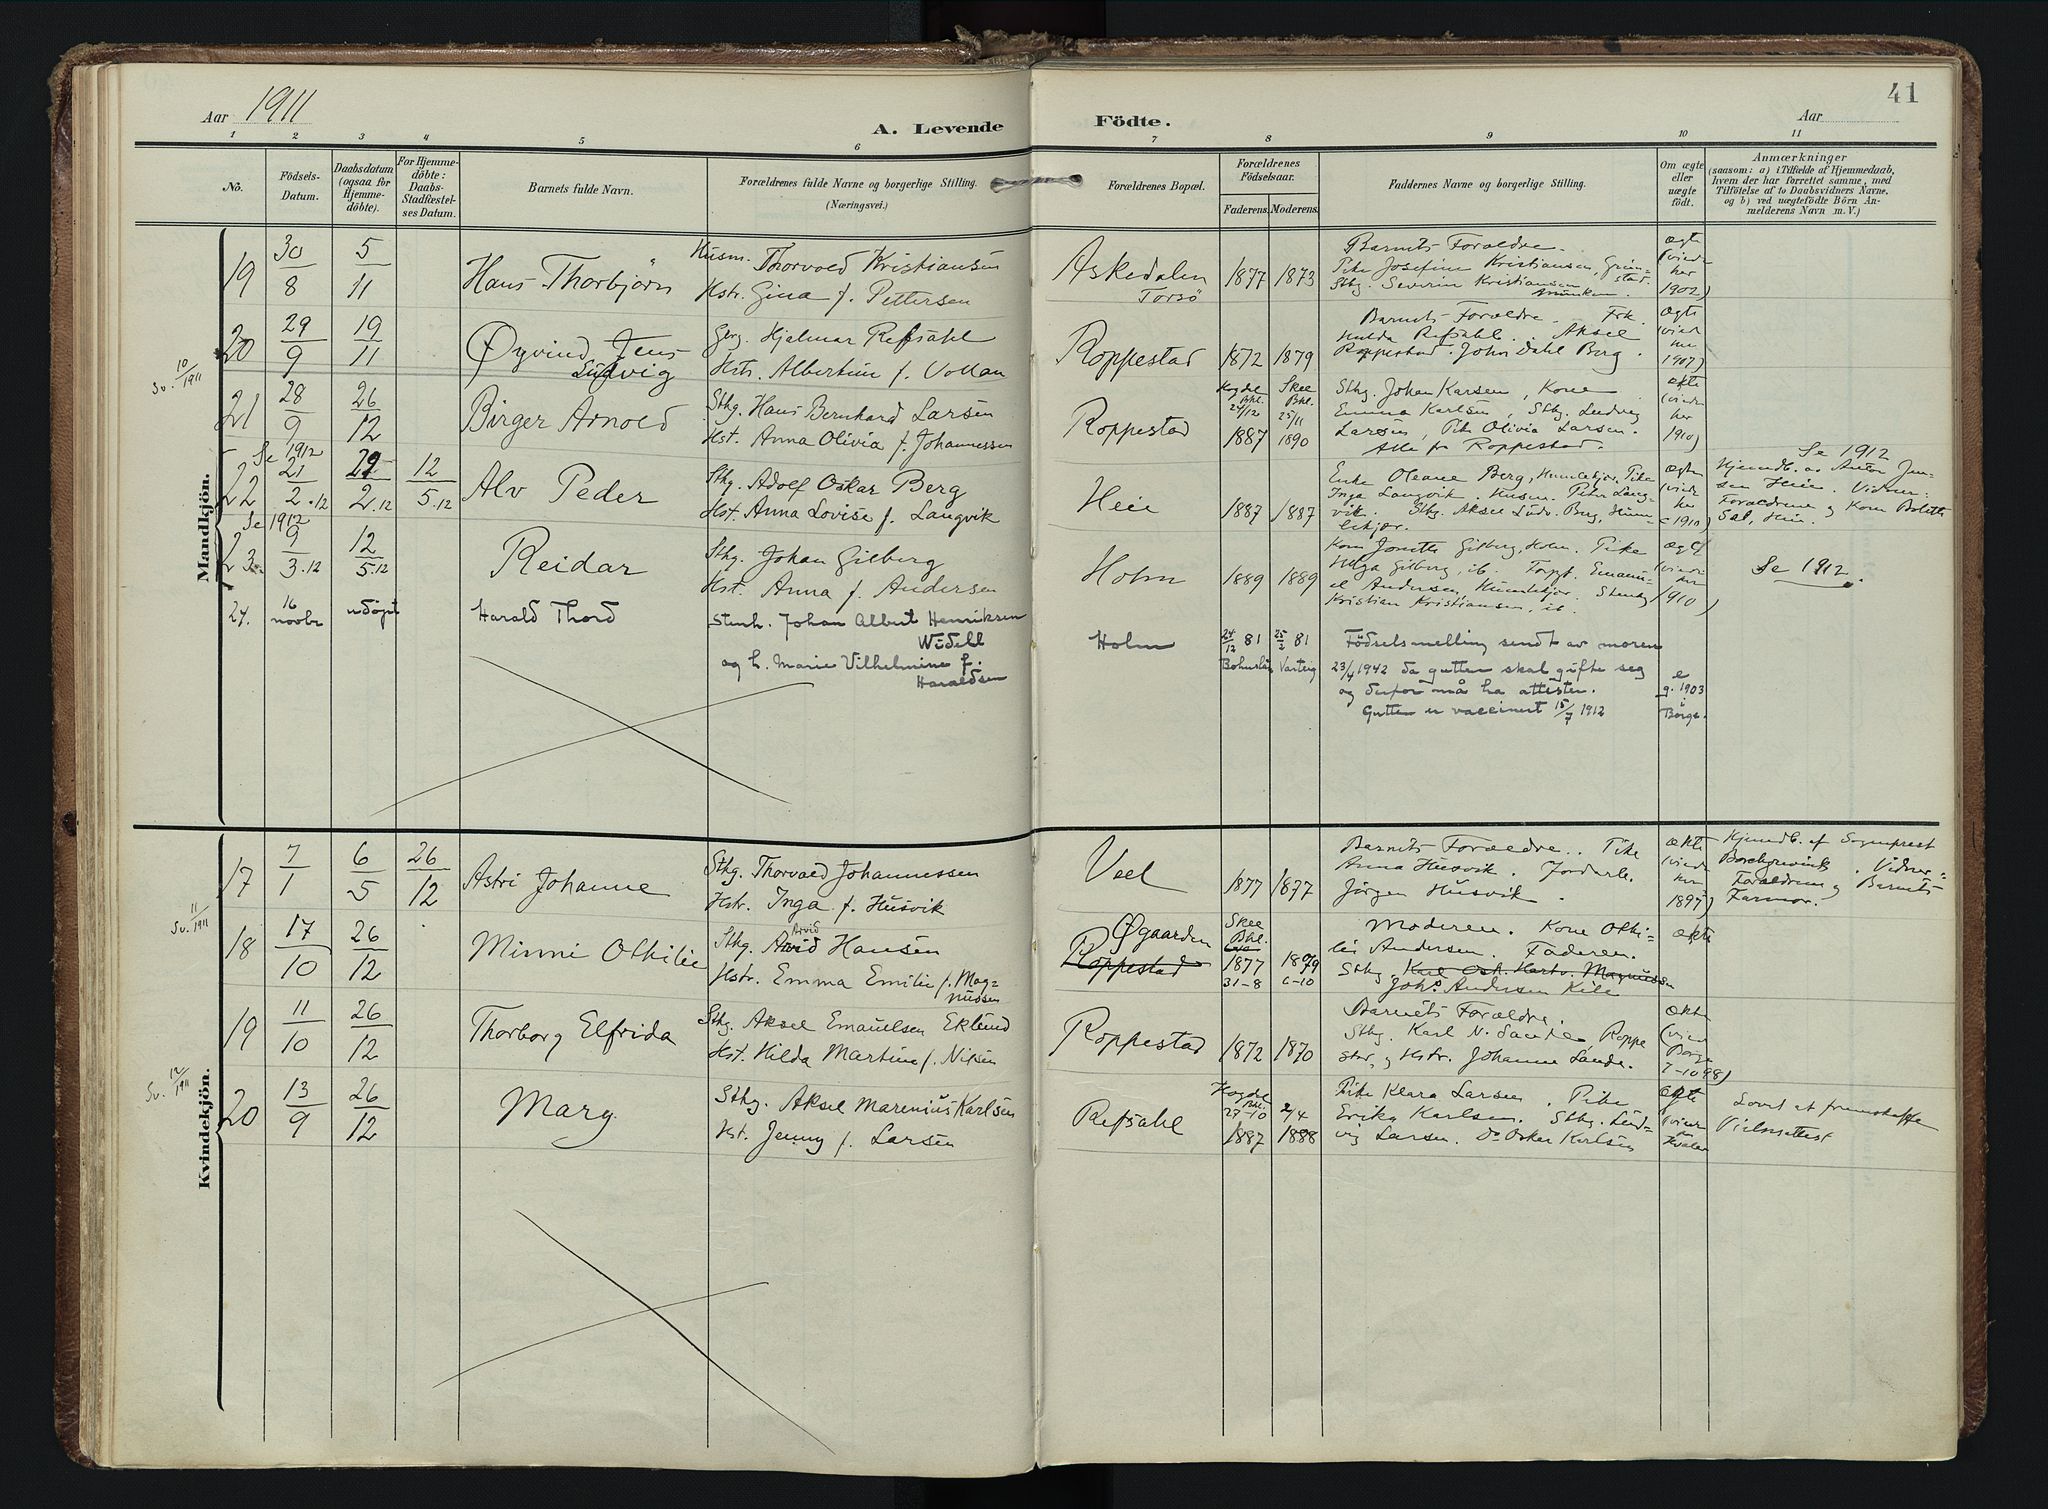 41
Aar 1911
A. Levende Födte.
Aar
1 2 3 4 5 6 7 8 9 10 11
No.
Födsels-
Datum.
Daabsdatum
(ogsaa for
Hjemme-
döbte).
For Hjemme-
döbte:
Daabs-
Stadfæstel-
ses Datum.
Barnets fulde Navn.
Forældrenes fulde Navne og borgerlige Stilling.
(Næringsvei.)
Forældrenes Bopæl.
Forældrenes
Födselsaar.
Faderens. Moderens.
Faddernes Navne og borgerlige Stilling.
Om ægte
eller
uægte
født.
Anmærkninger
(saasom: a) i Tilfælde af Hjemmedaab,
hvem der har forrettet samme, med
Tilföielse af to Daabsvidners Navne,
og b) ved uægtefödte Börn An-
melderens Navn m. V.)
Mandkjön.
19 30/8 5/11 Hans Thorbjörn
Husm. Thorvald Kristiansen
Hstr. Gina f. Pettersen
Askedalen
Torsö
1877 1873
Barnets Forældre.
Pike Josefine Kristiansen,
Stbg. Severin Kristiansen
ægte
(viede
her
1902)
Sv. 10/1911
20 29/9 19/11 Øyvind Jens
Ludvig
Grg. Hjalmar Refsahl
Hstr. Albertine f. Vollan
Roppestad
1872 1879
Barnets Forældre. Frk.
Hulda Refsahl. Aksel
Roppestad. John Dahl Berg.
ægte
(viede
her
1907)
21 28/9 26/12 Birger Arnold
Stbg. Hans Bernhard Larsen
Hst. Anna Olivia f. Johannessen
Roppestad
24/12 1887
Skee
25/11 1890
Stbg. Johan Karsen, Kone
Emma Karlsen, Stbg. Ludvig
Larsen, Pike Olivia Larsen.
Alle fr Roppestad.
ekte
(viede
her
1910)
Se 1912
22 21/2.12 29/2.12 12/5.12 Alv Peder
Stbg. Adolf Oskar Berg
Hst. Anna Lovise f. Langvik
Heie
1887 1887
Enke Oleane Berg, Humlekjær. Pike
Inga Langvik. Husm. Peter Lang-
vik. Stbg. Aksel Ludv. Berg, Hum-
lekjær.
ægte
(viede
her
1910)
Se 1912
Hjemdb. av Anton Jen-
sen Heie. Vidner:
Forældrene og Kone Bolette
Sal, Heie.
Se 1912
23. 9/3.12 12/5.12 Reidar
Stbg. Johan Gilberg
Hst. Anna f. Andersen
Holm
1889 1889
Kone Josette Gilberg, Holm. Pike
Helga Gilberg, ib. Emanu-
el Andersen, Humlekjær.
Kristian Kristiansen, ib.
ægte
(viede
her
1910)
Se 1912.
24. 16 novbr udöpt Harald Thord
Stenh. Johan Albert Henriksen
Widell
og h. Marie Vilhelmine f.
Haraldsen
Holm
24/12 81 25/2 81
Bohuslän Varteig
Födselsmelling sendt av moren
23/4 1942 da gutten skal gifte seg
og derfor må ha attester.
Gutten er vaccinert 15/7 1912
e
g. 1903
i
Börge.
Kvindekjön.
17 7/1 6/5 26/12 Astri Johanne
Stbg. Thorvald Johannessen
Hstr. Inga f. Husvik
Vell
1877 1877
Barnets Forældre. Pike
Anna Husvik. Jorderb.
Jörgen Husvik.
ækte
(viede
her
1897)
Hjemdb. af Sogneprest
Borchgrevink. Vidner:
Forældrene og Barnets
Farmor.
Sv. 11/1911
18 17/10 26/12 Minni Othilie
Arvid
Stbg. Arvid Hansen
Hstr. Emma Emilie f. Mag-
nussen
Øgaarden
Roppestad
Skee
1877 1879
31-8 6-10
Moderen. Kone Othi-
lie Andersen. Faderen.
Stbg. Karl Osk. Hartv. Magnussen
Johs. Andersen Kile
ekte
19 11/10 26/12 Thorborg Elfrida
Stbg. Aksel Emanuelsen Eklund
Hst. Hilda Martine f. Nilsen
Roppestad
1872 1870
Barnets Forældre.
Stbg. Karl N. Sande, Roppe
stad, og Hstr. Johanne Sande.
ekte
(viede
Borge
7-10 98)
Sv. 12/1911
20 13/9 26/12 Marg.
Stbg. Aksel Marenius Karlsen
Hst. Jenny f. Larsen
Refsahl
27-10 2/4
1887 1888
Pike Klara Larsen. Pike
Erika Karlsen. Stbg. Lud-
vig Larsen. Do Oskar Karlsen
ekte
(viede
Hvaler
Lovet at fremskaffe
Vielsesattest